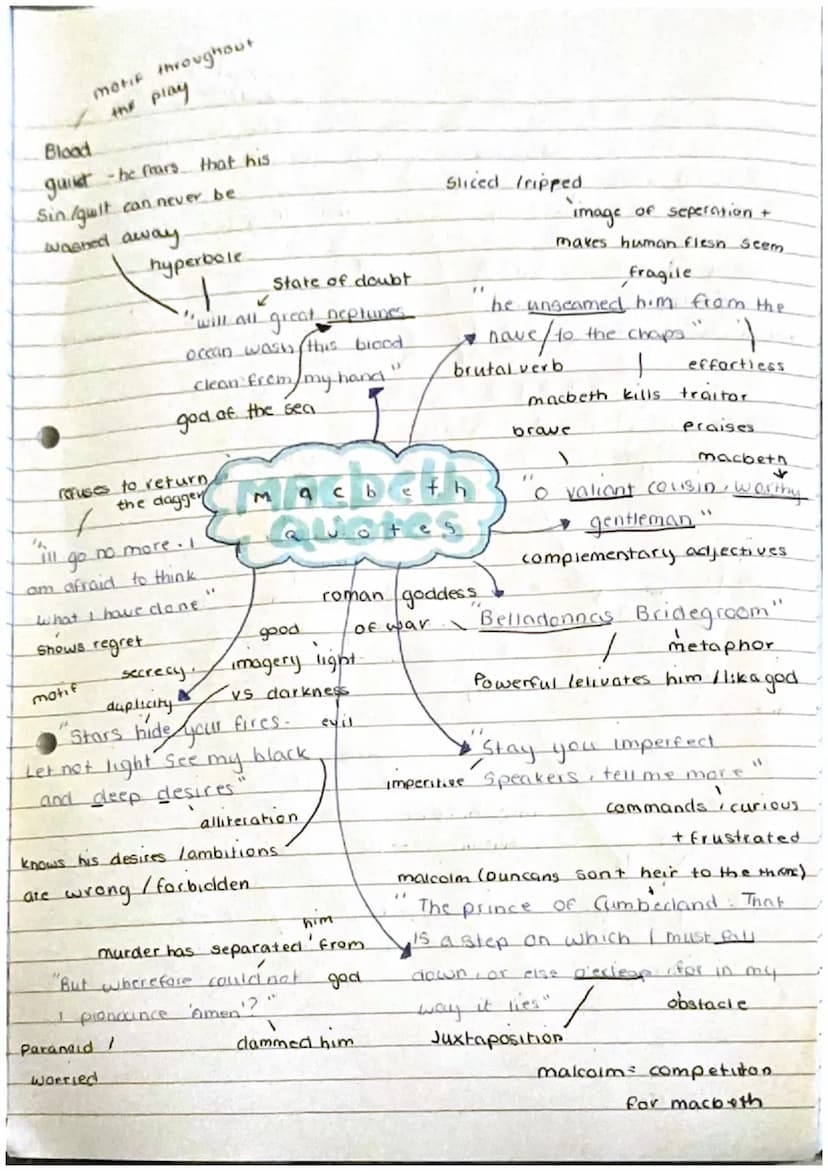 motif throughout
the play
Blood
guilt - he fears that his
sin/guilt can never be
washed away
hyperbole
State of doubt
"will all great neptunes
ocean wash this blood
clean from my hand"
god of the sea
sliced /ripped
image of seperation +
makes human flesh seem
fragile
"he unseamed him from the
nave/to the chaps"
brutal verb
effortless
macbeth kills traitor
brave
praises
macbeth
"O valiant cousin, worthy
gentleman"
complementary adjectives
Macbeth
Quotes
refuses to return
the dagger
"ill go no more. I
am afraid to think
what I have done"
shows regret
roman goddess
of war
"Belladonnas Bridegroom"
metaphor
Powerful /elivates him /like a god
good
imagery light
vs darkness
evil
secrecy.
motif
duplicity
"Stars hide your fires.
Let not light see my black
and deep desires"
alliteration
knows his desires /ambitions
are wrong /forbidden
"Stay you imperfect
speakers, tell me more"
imperitive
commands, curious
+ frustrated
malcolm (duncans son + heir to the throne)
"The prince of Cumberland. That
is a step on which I must fall
down, or else o'erleap, for in my
way it lies"
obstacle
Juxtaposition
malcolm = competiton
for macbeth
him
murder has separated from
god
"But wherefore could not
I pronounce 'amen'?"
Paranoid /
worried
dammed him